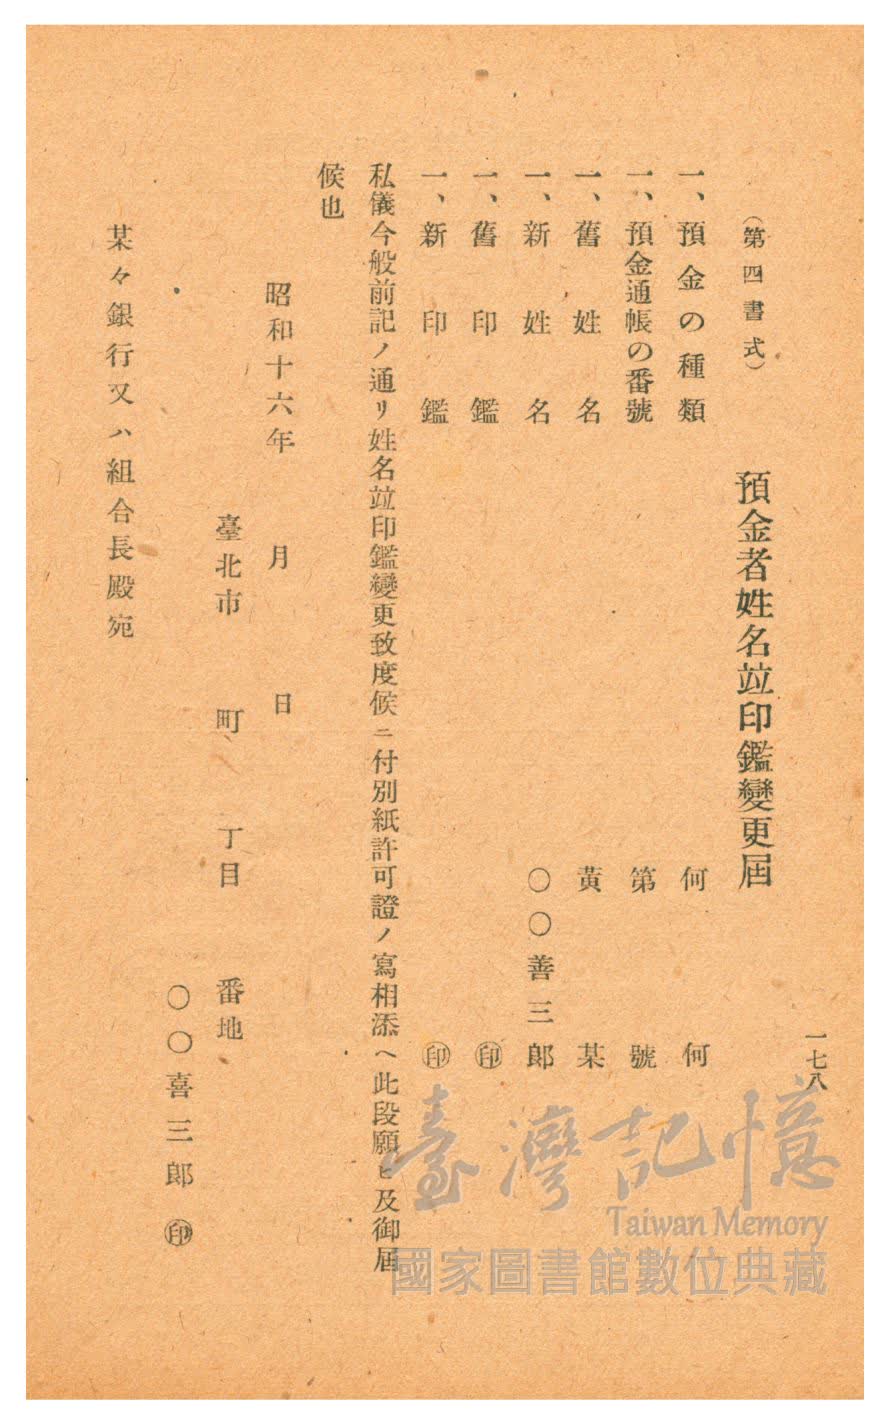 一七八
（第四書式）　預金者姓名竝印鑑變更屆
一、預金の種類　何　何
一、預金通帳の番號　第　號
一、舊姓名　黃　某
一、新姓名　〇〇善三郎
一、舊印鑑　㊞
一、新印鑑　㊞
私儀今般前記ノ通リ姓名竝印鑑變更致度候ニ付別紙許可證ノ寫相添ヘ此段願ヒ及御屆
候也
昭和十六年　月　日
臺北市　町　丁目　番地
〇〇喜三郎㊞
某々銀行又ハ組合長殿宛
臺灣記憶
Taiwan Memory
國家圖書館數位典藏